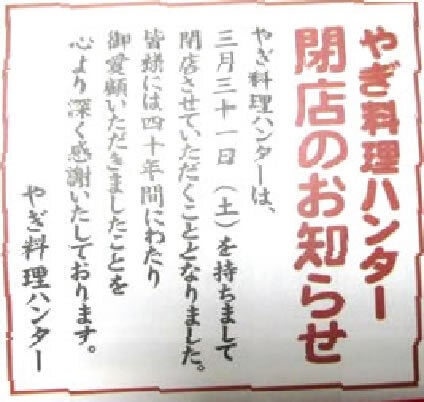 やぎ料理ハンター
閉店のお知らせ
やぎ料理ハンターは、
三月三十一日（土）を持ちまして
閉店させていただくこととなりました。
皆様には四十年間にわたり
御愛顧いただきましたことを
心より深く感謝いたしております。
やぎ料理ハンター